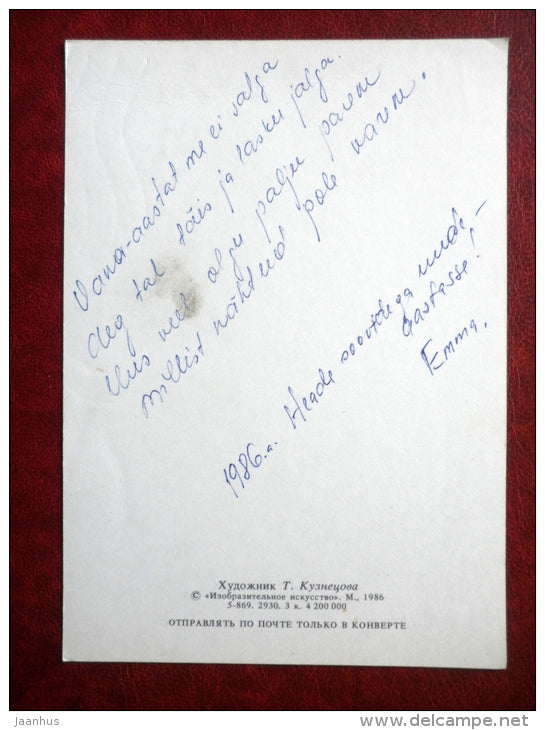 Vana-aastat me ei salga
Aeg tal täis ja lasku jalga.
Uus veel olgu palju parem
millist nähtud pole varem.
1986.a. Heade soovidega uude-
aastasse!
Emma.
Художник Т. Кузнецова
© «Изобразительное искусство». М., 1986
5-869. 2930. 3 к. 4 200 000
ОТПРАВЛЯТЬ ПО ПОЧТЕ ТОЛЬКО В КОНВЕРТЕ
Jaanhus
www.delcampe.net